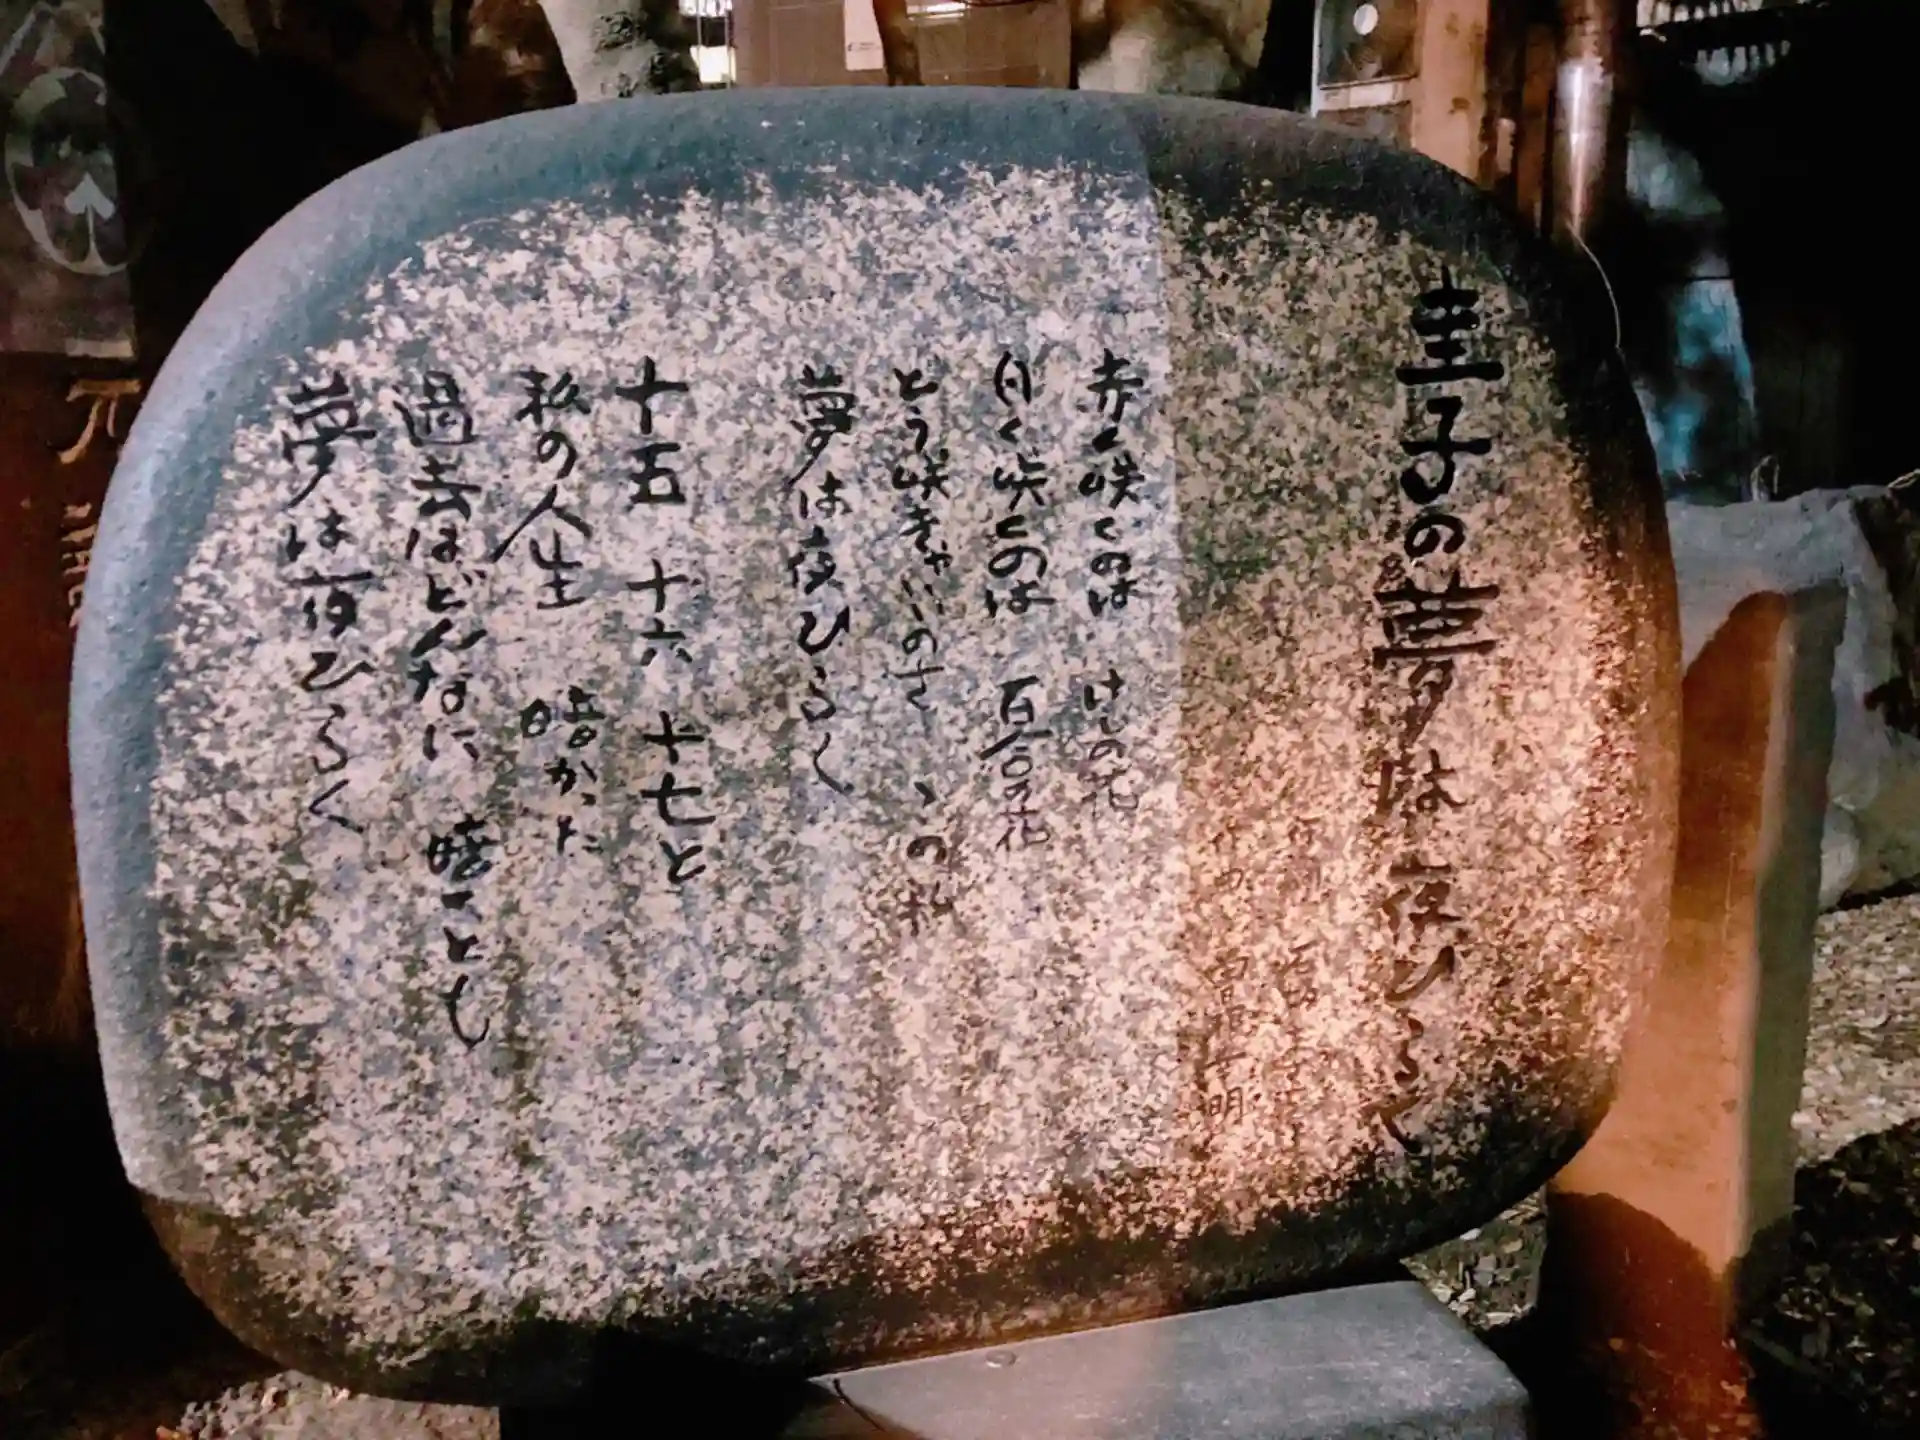 圭子の夢は夜ひらく
作詞 石坂まさを
作曲 曽根幸明
赤く咲くのは けしの花
白く咲くのは 百合の花
どう咲きゃいいのさ この私
夢は夜ひらく
十五 十六 十七と
私の人生 暗かった
過去はどんなに 暗くとも
夢は夜ひらく